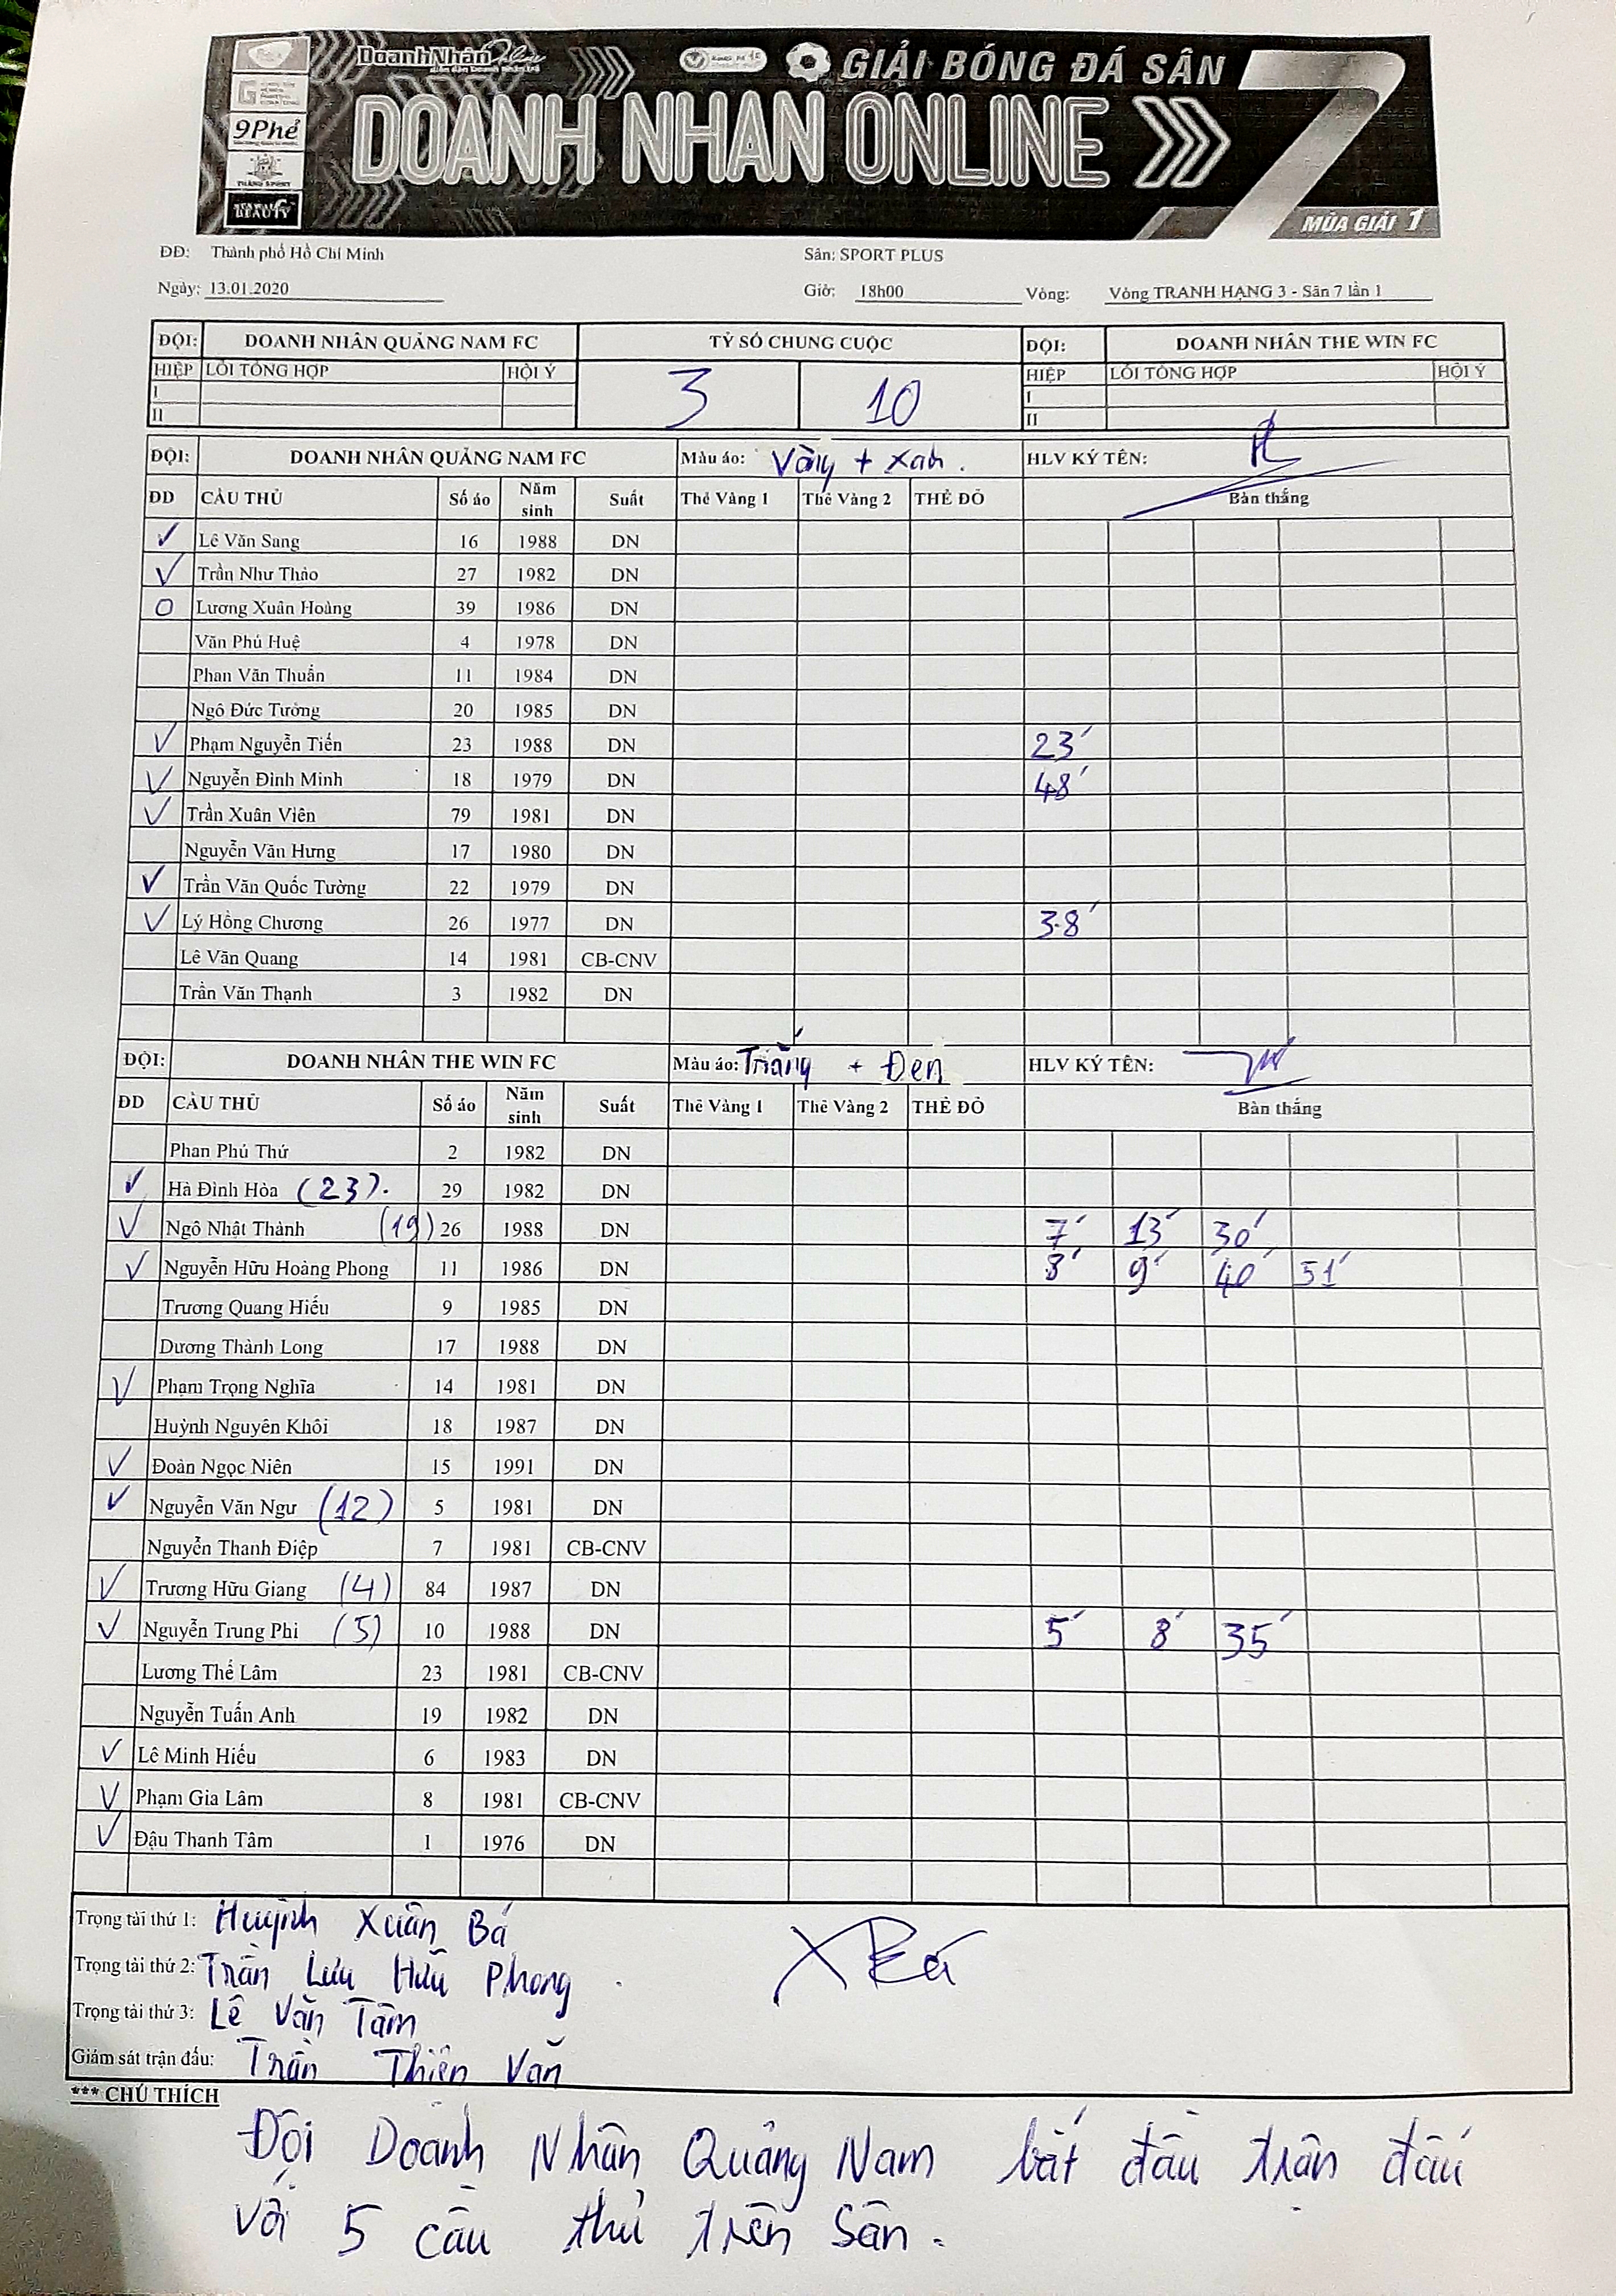 DoanhNhânOnline
GIẢI BÓNG ĐÁ SÂN 7
9Phẻ
DOANH NHAN ONLINE
BEAUTY
MÙA GIẢI 1
ĐĐ: Thành phố Hồ Chí Minh Sân: SPORT PLUS
Ngày: 13.01.2020 Giờ: 18h00 Vòng: Vòng TRANH HẠNG 3 - Sân 7 lần 1
ĐỘI: DOANH NHÂN QUẢNG NAM FC TỶ SỐ CHUNG CUỘC ĐỘI: DOANH NHÂN THE WIN FC
HIỆP LỖI TỔNG HỢP HỘI Ý 3 10 HIỆP LỖI TỔNG HỢP HỘI Ý
I I
II II
ĐỘI: DOANH NHÂN QUẢNG NAM FC Màu áo: Vàng + Xanh. HLV KÝ TÊN:
ĐD CẦU THỦ Số áo Năm sinh Suất Thẻ Vàng 1 Thẻ Vàng 2 THẺ ĐỎ Bàn thắng
✓ Lê Văn Sang 16 1988 DN
✓ Trần Như Thảo 27 1982 DN
O Lương Xuân Hoàng 39 1986 DN
Văn Phú Huệ 4 1978 DN
Phan Văn Thuẩn 11 1984 DN
Ngô Đức Tưởng 20 1985 DN
✓ Phạm Nguyễn Tiến 23 1988 DN 23'
✓ Nguyễn Đình Minh 18 1979 DN 48'
✓ Trần Xuân Viên 79 1981 DN
Nguyễn Văn Hưng 17 1980 DN
✓ Trần Văn Quốc Tường 22 1979 DN
✓ Lý Hồng Chương 26 1977 DN 38'
Lê Văn Quang 14 1981 CB-CNV
Trần Văn Thạnh 3 1982 DN
ĐỘI: DOANH NHÂN THE WIN FC Màu áo: Trắng + Đen HLV KÝ TÊN:
ĐD CẦU THỦ Số áo Năm sinh Suất Thẻ Vàng 1 Thẻ Vàng 2 THẺ ĐỎ Bàn thắng
Phan Phú Thứ 2 1982 DN
✓ Hà Đình Hòa (23). 29 1982 DN
✓ Ngô Nhật Thành (19) 26 1988 DN 7' 13' 30'
✓ Nguyễn Hữu Hoàng Phong 11 1986 DN 8' 9' 40' 51'
Trương Quang Hiếu 9 1985 DN
Dương Thành Long 17 1988 DN
✓ Phạm Trọng Nghĩa 14 1981 DN
Huỳnh Nguyên Khôi 18 1987 DN
✓ Đoàn Ngọc Niên 15 1991 DN
✓ Nguyễn Văn Ngư (12) 5 1981 DN
Nguyễn Thanh Điệp 7 1981 CB-CNV
✓ Trương Hữu Giang (4) 84 1987 DN
✓ Nguyễn Trung Phi (5) 10 1988 DN 5' 8' 35'
Lương Thế Lâm 23 1981 CB-CNV
Nguyễn Tuấn Anh 19 1982 DN
✓ Lê Minh Hiếu 6 1983 DN
✓ Phạm Gia Lâm 8 1981 CB-CNV
✓ Đậu Thanh Tâm 1 1976 DN
Trọng tài thứ 1: Huỳnh Xuân Bá
Trọng tài thứ 2: Trần Lưu Hữu Phong
Trọng tài thứ 3: Lê Văn Tâm
Giám sát trận đấu: Trần Thiên Văn
*** CHÚ THÍCH
Đội Doanh Nhân Quảng Nam bắt đầu trận đấu
với 5 cầu thủ trên sân.